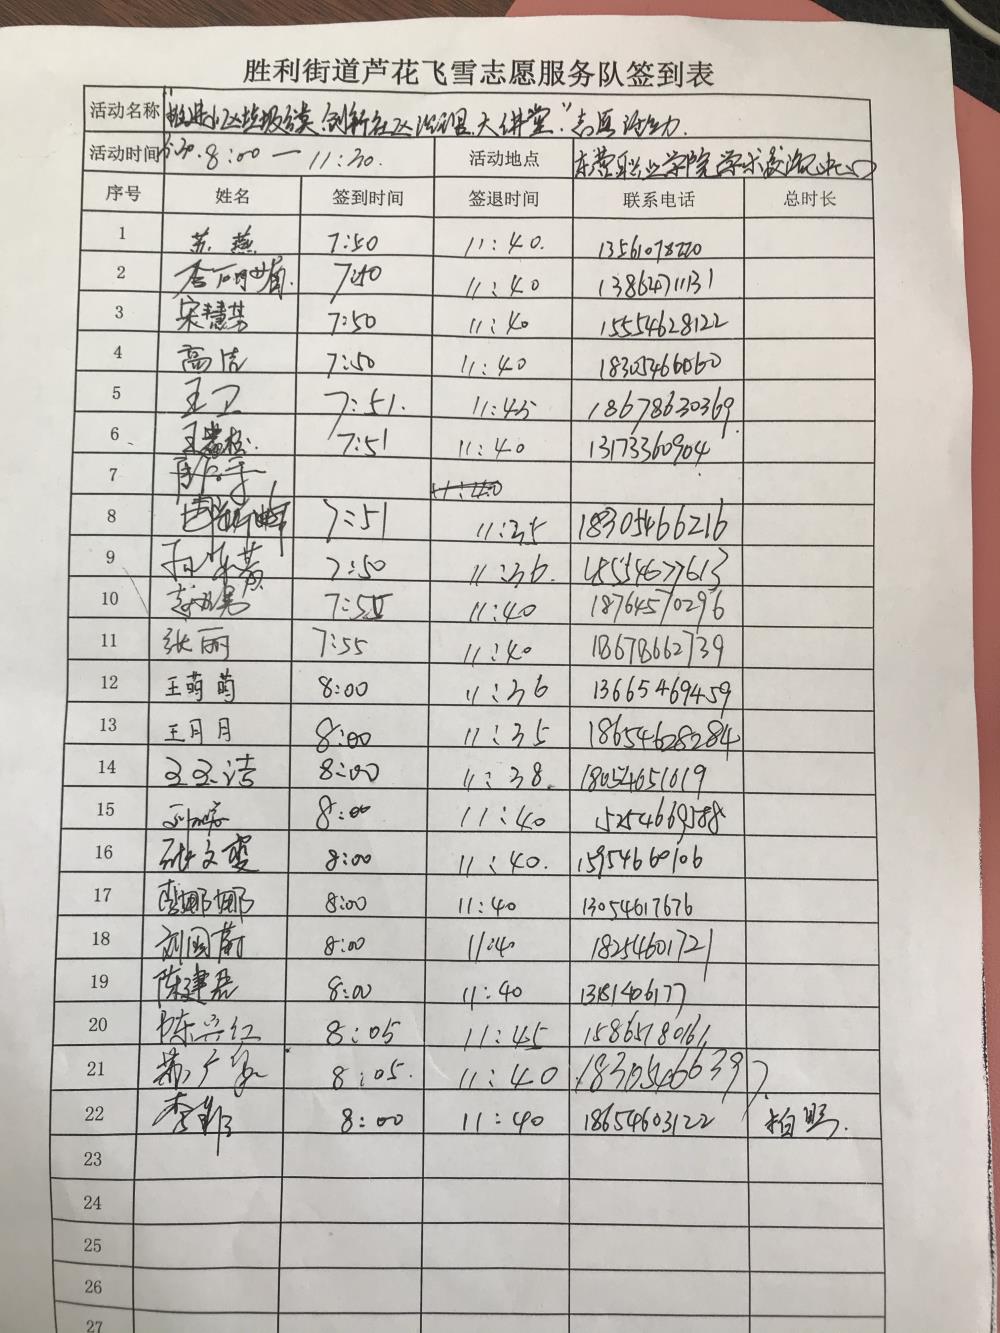 胜利街道芦花飞雪志愿服务队签到表
活动名称 垃圾分类 创新社区治理 大讲堂"志愿活动
活动时间 8:00—11:30. 活动地点 东营职业学院学术交流中心
序号 姓名 签到时间 签退时间 联系电话 总时长
1 苏燕 7:50 11:40. 13561078220
2 7:50 11:40 13864711131
3 宋慧芳 7:50 11:40 15554628122
4 高洁 7:50 11:40 18305466060
5 王卫 7:51. 11:45 18678630369
6 7:51 11:40 13173360904
7
8 7:51 11:35 18305466216
9 7:50 11:36. 15554677613
10 7:55 11:40 18764570296
11 张丽 7:55 11:40 18678662739
12 王萌萌 8:00 11:36 13665469459
13 王月月 8:00 11:35 18654628284
14 王玉洁 8:00 11:38. 18054651019
15 8:00 11:40 15254669588
16 张文雯 8:00 11:40. 15954660106
17 李娜娜 8:00 11:40 13054617676
18 刘国蔚 8:00 11:40 18254601721
19 陈建磊 8:00 11:40 13181406177
20 陈立红 8:05 11:45 15865780161
21 8:05. 11:40 18305466397
22 8:00 11:40 18654603122 拍照.
23
24
25
26
27